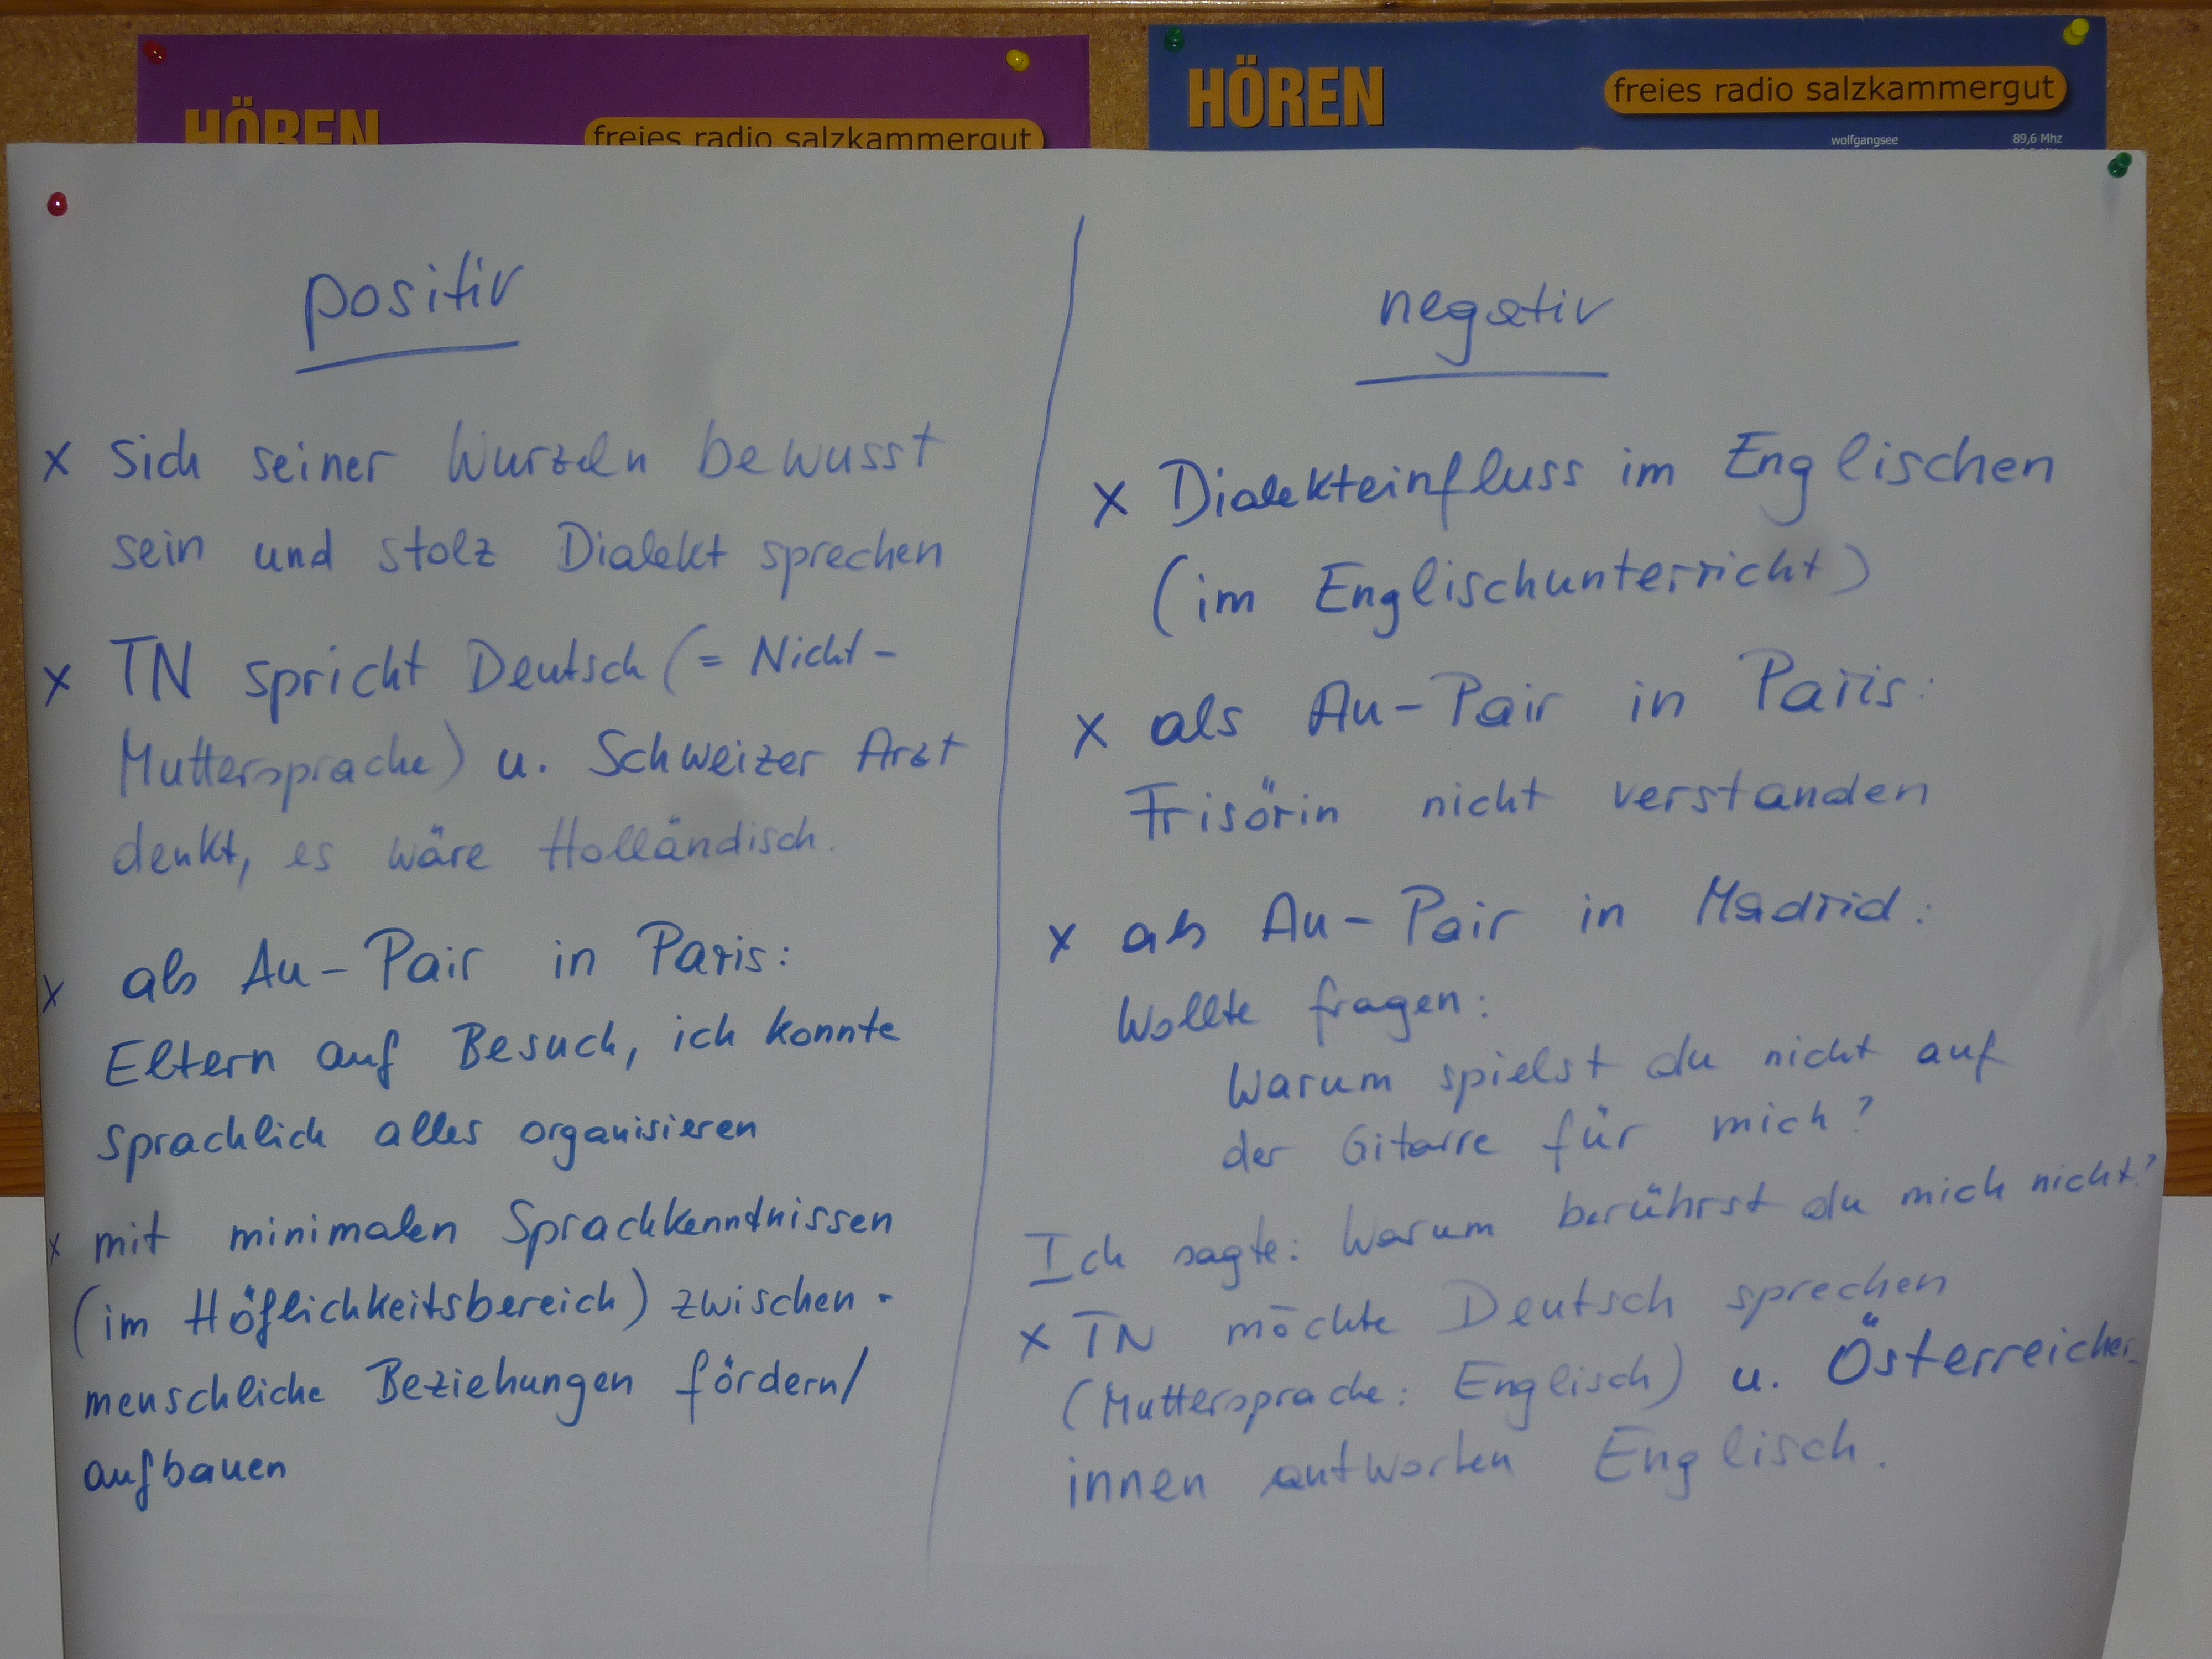 HÖREN
freies radio salzkammergut
HÖREN
freies radio salzkammergut
wolfgangsee 89,6 Mhz
positiv
x Sich seiner Wurzeln bewusst
sein und stolz Dialekt sprechen
x TN spricht Deutsch (= Nicht-
Muttersprache) u. Schweizer Arzt
denkt, es wäre Holländisch.
x als Au-Pair in Paris:
Eltern auf Besuch, ich konnte
sprachlich alles organisieren
x mit minimalen Sprachkenntnissen
(im Höflichkeitsbereich) zwischen-
menschliche Beziehungen fördern/
aufbauen
negativ
x Dialekteinfluss im Englischen
(im Englischunterricht)
x als Au-Pair in Paris:
Frisörin nicht verstanden
x als Au-Pair in Madrid:
Wollte fragen:
Warum spielst du nicht auf
der Gitarre für mich?
Ich sagte: Warum berührst du mich nicht?
x TN möchte Deutsch sprechen
(Muttersprache: Englisch) u. Österreicher-
innen antworten Englisch.